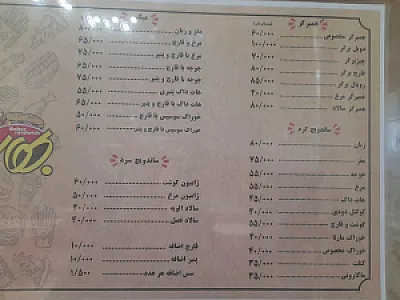 همبرگر
همبرگر مخصوص ۶۰/۰۰۰
دوبل برگر ۱۰۰/۰۰۰
چیزبرگر ۷۰/۰۰۰
قارچ برگر ۸۰/۰۰۰
رویال برگر ۸۵/۰۰۰
همبرگر مرغ ۳۰/۰۰۰
همبرگر سالاد ۸۰/۰۰۰
ساندویچ گرم
زبان ۸۰/۰۰۰
مغز ۷۵/۰۰۰
جوجه ۵۵/۰۰۰
مرغ ۵۵/۰۰۰
هات داگ ۴۵/۰۰۰
کوکتل دودی ۴۰/۰۰۰
گوشت و قارچ ۵۵/۰۰۰
خوراک مارفا ۴۰/۰۰۰
خوراک مخصوص ۴۰/۰۰۰
کتلت ۳۵/۰۰۰
ماکارونی ۳۵/۰۰۰
مغز و زبان ۸۰/۰۰۰
مرغ با قارچ ۶۵/۰۰۰
مرغ با قارچ و پنیر ۷۵/۰۰۰
جوجه با قارچ ۶۵/۰۰۰
جوجه با قارچ و پنیر ۷۵/۰۰۰
هات داگ پنیری ۵۵/۰۰۰
هات داگ با قارچ و پنیر ۶۵/۰۰۰
خوراک سوسیس با قارچ ۵۰/۰۰۰
خوراک سوسیس با قارچ و پنیر ۶۰/۰۰۰
ساندویچ سرد
ژامبون گوشت ۶۰/۰۰۰
ژامبون مرغ ۵۰/۰۰۰
سالاد الویه ۴۰/۰۰۰
سالاد فصل ۲۰/۰۰۰
قارچ اضافه ۱۰/۰۰۰
پنیر اضافه ۱۰/۰۰۰
سس اضافه هر عدد ۱/۵۰۰